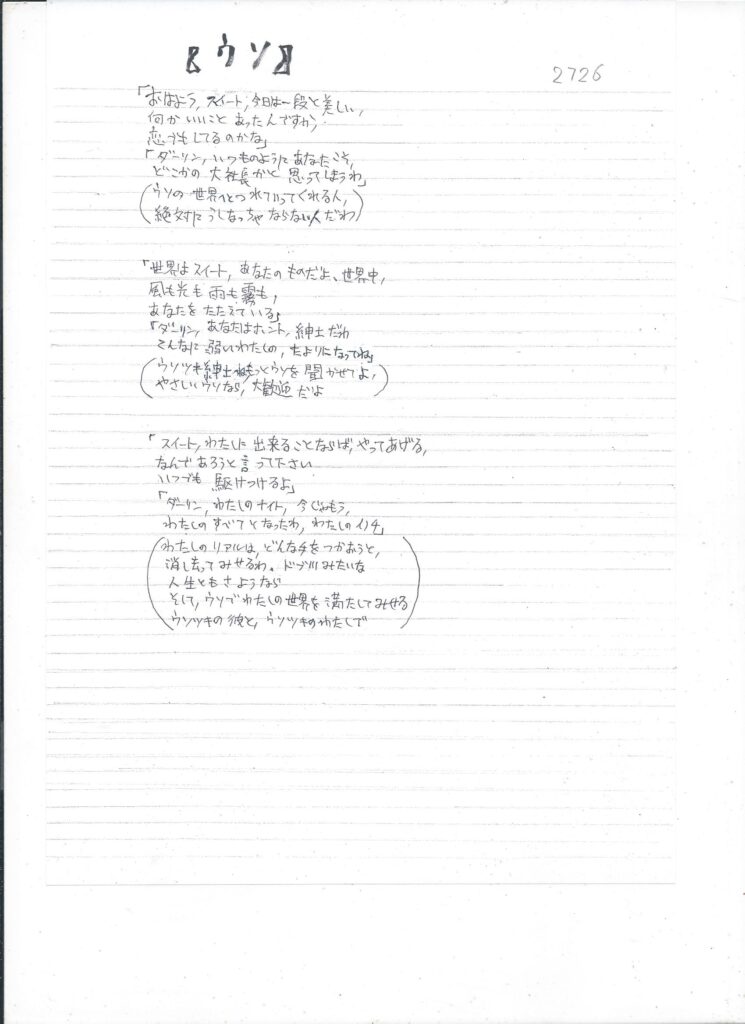 【ウソ】
2726
「おはよう，スイート，今日は一段と美しい，
何かいいことあったんですか，
恋でもしてるのかな」
「ダーリン，いつものようにあなたこそ，
どこかの大社長かと思ってしまうわ」
(ウソの世界へとつれていってくれる人，
絶対にうしなっちゃならない人だわ)
「世界はスイート，あなたのものだよ、世界中，
風も光も雨も霧も，
あなたをたたえている」
「ダーリン，あなたはホント，紳士だわ
こんなに弱いわたしの，たよりになってね」
(ウソツキ紳士ねもっとウソを聞かせてよ，
やさしいウソなら，大歓迎だよ)
「スイート，わたしに出来ることならば，やってあげる，
なんであろうと言って下さい
いつでも駆けつけるよ」
「ダーリン，わたしのナイト，今じゃもう，
わたしのすべてとなったわ，わたしのイノチ」
(わたしのリアルは，どんな手をつかおうと，
消し去ってみせるわ。ドブ川みたいな
人生ともさようなら
そして，ウソでわたしの世界を満たしてみせる
ウソツキの彼と，ウソツキのわたしで)